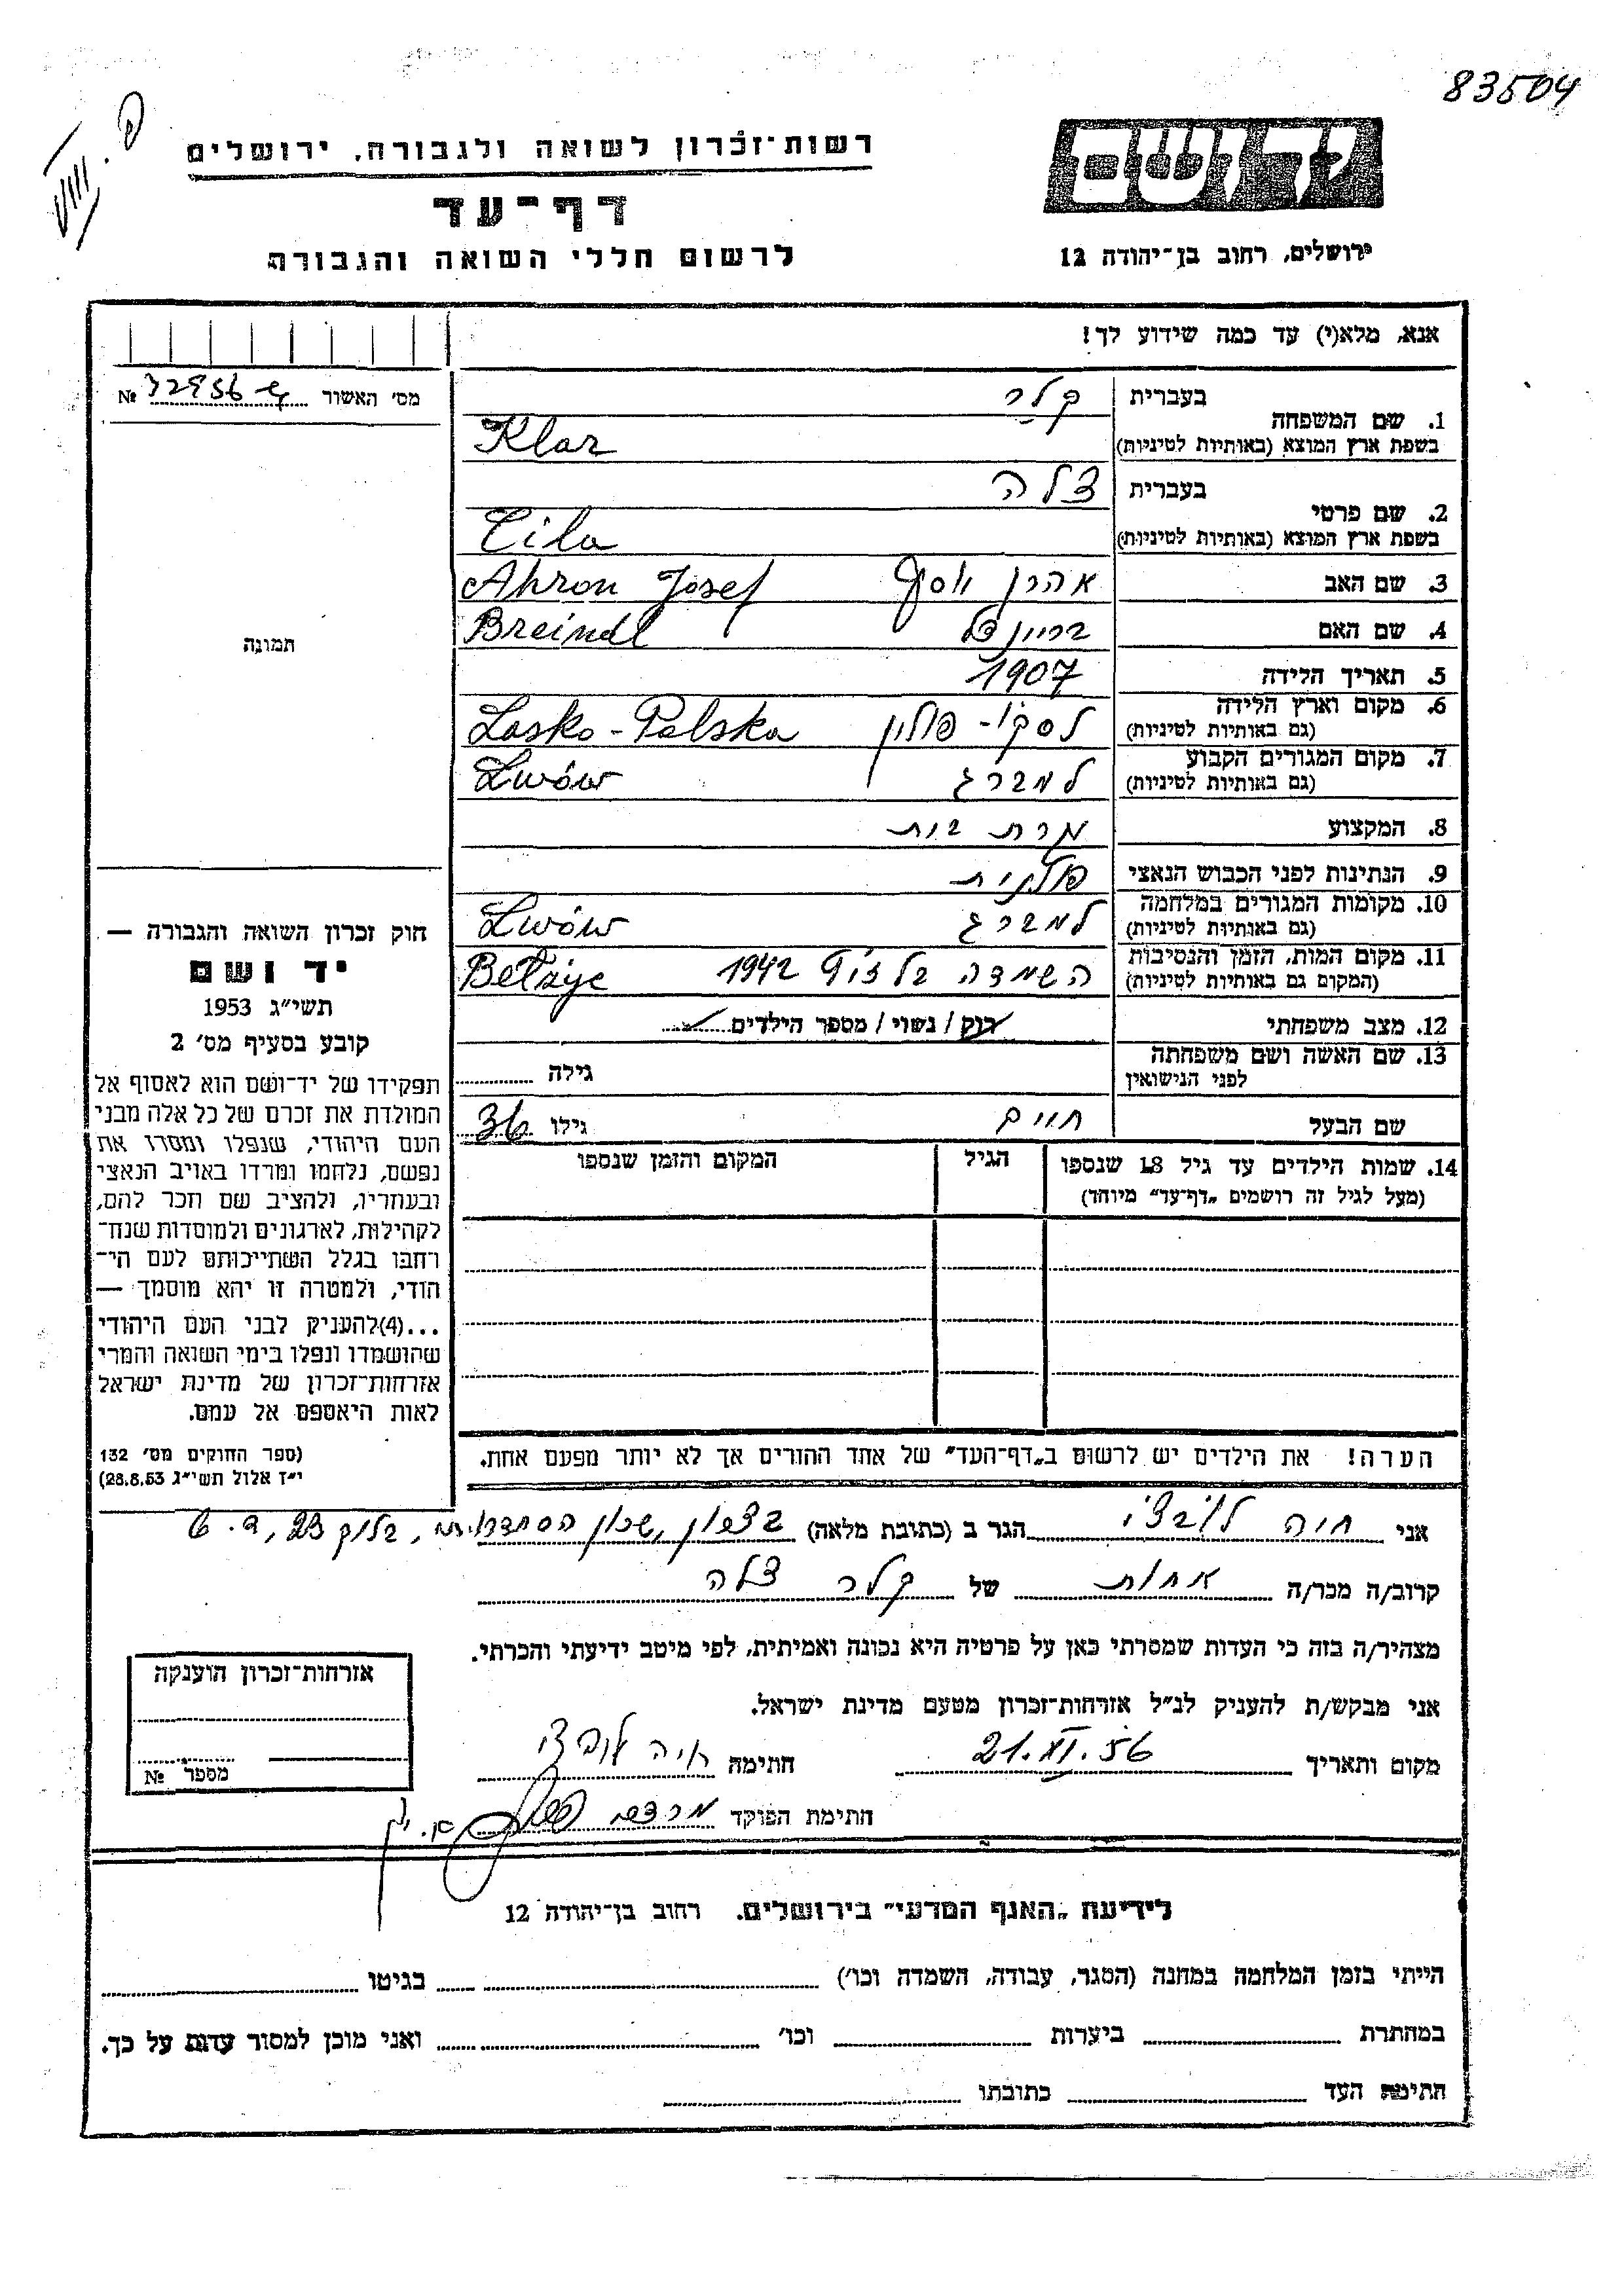 83504
רשות־זכרון לשואה ולגבורה, ירושלים
דף־עד
לרשום חללי השואה והגבורה
יד ושם
ירושלים, רחוב בן־יהודה 12
אנא, מלא(י) עד כמה שידוע לך!
מס' האשור №
1. שם המשפחה
בעברית קלר
בשפת ארץ המוצא (באותיות לטיניות) Klar
2. שם פרטי
בעברית צלה
בשפת ארץ המוצא (באותיות לטיניות) Cila
3. שם האב אהרן יוסף Ahron Josef
4. שם האם בריינדל Breindl
5. תאריך הלידה 1907
6. מקום וארץ הלידה
(גם באותיות לטיניות) לסקו - פולין Lasko - Polska
7. מקום המגורים הקבוע
(גם באותיות לטיניות) למברג Lwów
8. המקצוע עקרת בית
9. הנתינות לפני הכבוש הנאצי פולנית
10. מקומות המגורים במלחמה
(גם באותיות לטיניות) למברג Lwów
11. מקום המות, הזמן והנסיבות
(המקום גם באותיות לטיניות) השמדה בלזיץ 1942 Belżyc
12. מצב משפחתי רוק / נשוי / מספר הילדים
13. שם האשה ושם משפחתה
לפני הנישואין גילה
שם הבעל חיים גילו 36
14. שמות הילדים עד גיל 18 שנספו
(מעל לגיל זה רושמים „דף־עד" מיוחד)
הגיל
המקום והזמן שנספו
הערה! את הילדים יש לרשום ב„דף־העד" של אחד ההורים אך לא יותר מפעם אחת.
תמונה
חוק זכרון השואה והגבורה —
יד ושם
תשי״ג 1953
קובע בסעיף מס' 2
תפקידו של יד־ושם הוא לאסוף אל
המולדת את זכרם של כל אלה מבני
העם היהודי, שנפלו ומסרו את
נפשם, נלחמו ומרדו באויב הנאצי
ובעוזריו, ולהציב שם וזכר להם,
לקהילות, לארגונים ולמוסדות שנח־
רחבו בגלל השתייכותם לעם הי־
הודי, ולמטרה זו יהא מוסמך —
...(4)להעניק לבני העם היהודי
שהושמדו ונפלו בימי השואה והמרי
אזרחות־זכרון של מדינת ישראל
לאות היאספם אל עמם.
(ספר החוקים מס' 132
י״ז אלול תשי״ג 28.8.53)
אני חיה הגר ב (כתובת מלאה) שכון
קרוב/ה מכר/ה אחות של קלר צלה
מצהיר/ה בזה כי העדות שמסרתי כאן על פרטיה היא נכונה ואמיתית, לפי מיטב ידיעתי והכרתי.
אני מבקש/ת להעניק לנ״ל אזרחות־זכרון מטעם מדינת ישראל.
מקום ותאריך 21.XI.56 חתימה
חתימת הפוקד
אזרחות־זכרון הוענקה
מספר №
לידיעת „האגף המדעי" בירושלים. רחוב בן־יהודה 12
הייתי בזמן המלחמה במחנה (הסגר, עבודה, השמדה וכו') בגיטו
במחתרת ביערות וכו' ואני מוכן למסור עדות על כך.
חתימת העד כתובתו